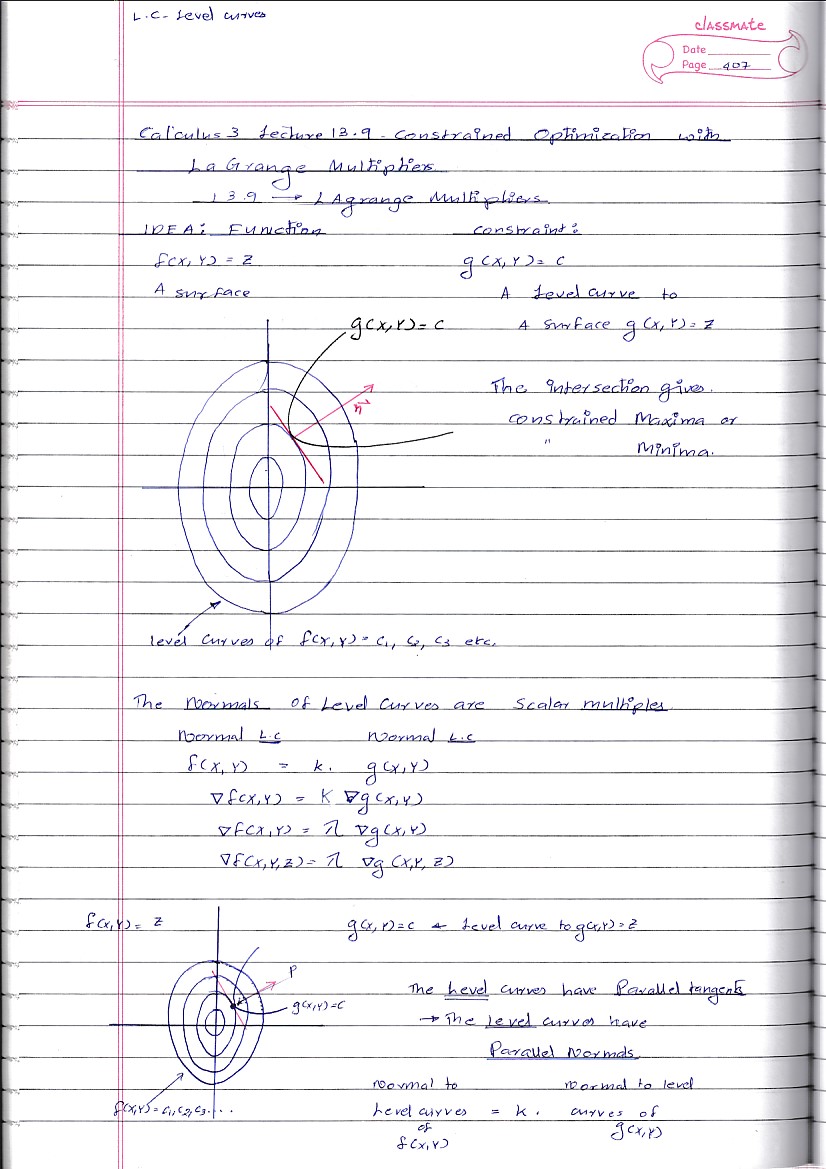 L.C - Level curves
classmate
Date
Page 407
Calculus 3 Lecture 13.9 - Constrained Optimization with
LaGrange Multipliers
13.9 → LAgrange Multipliers
IDEA: Function constraint:
f(x,y) = z g(x,y) = c
A surface A Level curve to
g(x,y) = c A surface g(x,y) = z
The intersection gives.
constrained Maxima or
" Minima.
n
level curves of f(x,y) = c1, c2, c3 etc.
The Normals of Level Curves are scalar multiples
Normal L.C Normal L.C
f(x,y) = k. g(x,y)
∇f(x,y) = K ∇g(x,y)
∇f(x,y) = λ ∇g(x,y)
∇f(x,y,z) = λ ∇g(x,y,z)
f(x,y) = z g(x,y) = c ← Level curve to g(x,y) = z
P
g(x,y) = c
The Level curves have Parallel tangents
→ The level curves have
Parallel Normals
Normal to Normal to level
f(x,y) = c1, c2, c3.... Level curves = k. curves of
of g(x,y)
f(x,y)